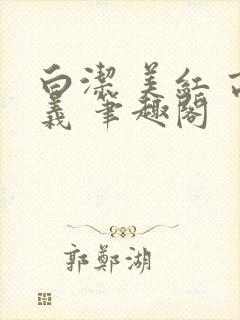 白潔 美紅 
義 筆趣閣
郭鄭湖